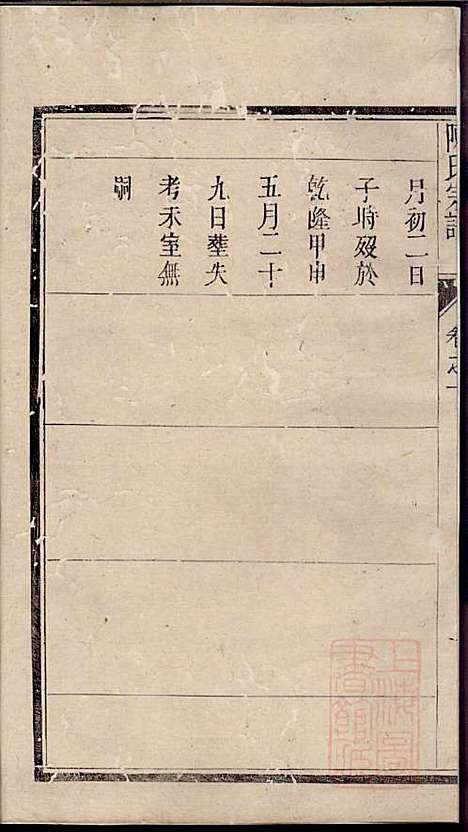 月初二日
子時歿於
乾隆甲申
五月二十
九日塟失
考未室無
嗣
陳氏宗譜
卷之一
上海圖書館藏